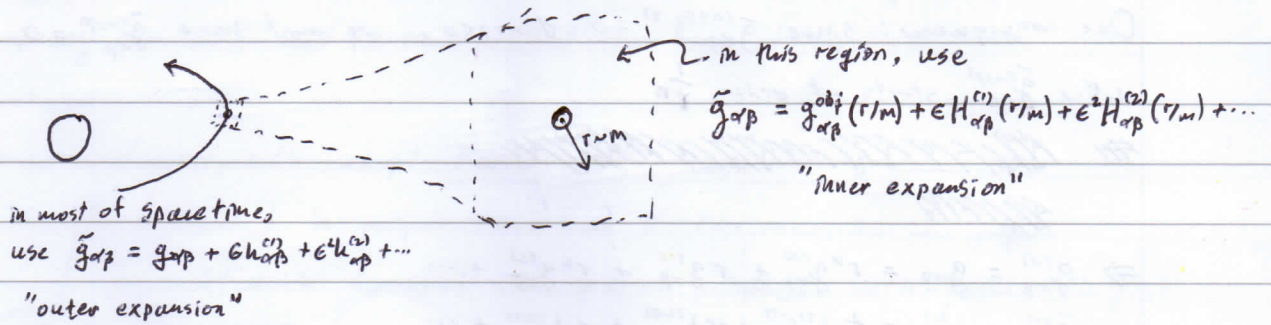 in this region, use
g̃_αβ = g^obj_αβ (r/m) + ϵ H^(1)_αβ (r/m) + ϵ² H^(2)_αβ (r/m) + ⋯
"inner expansion"
r~m
in most of spacetime,
use g̃_αβ = g_αβ + ϵ h^(1)_αβ + ϵ² h^(2)_αβ + ⋯
"outer expansion"